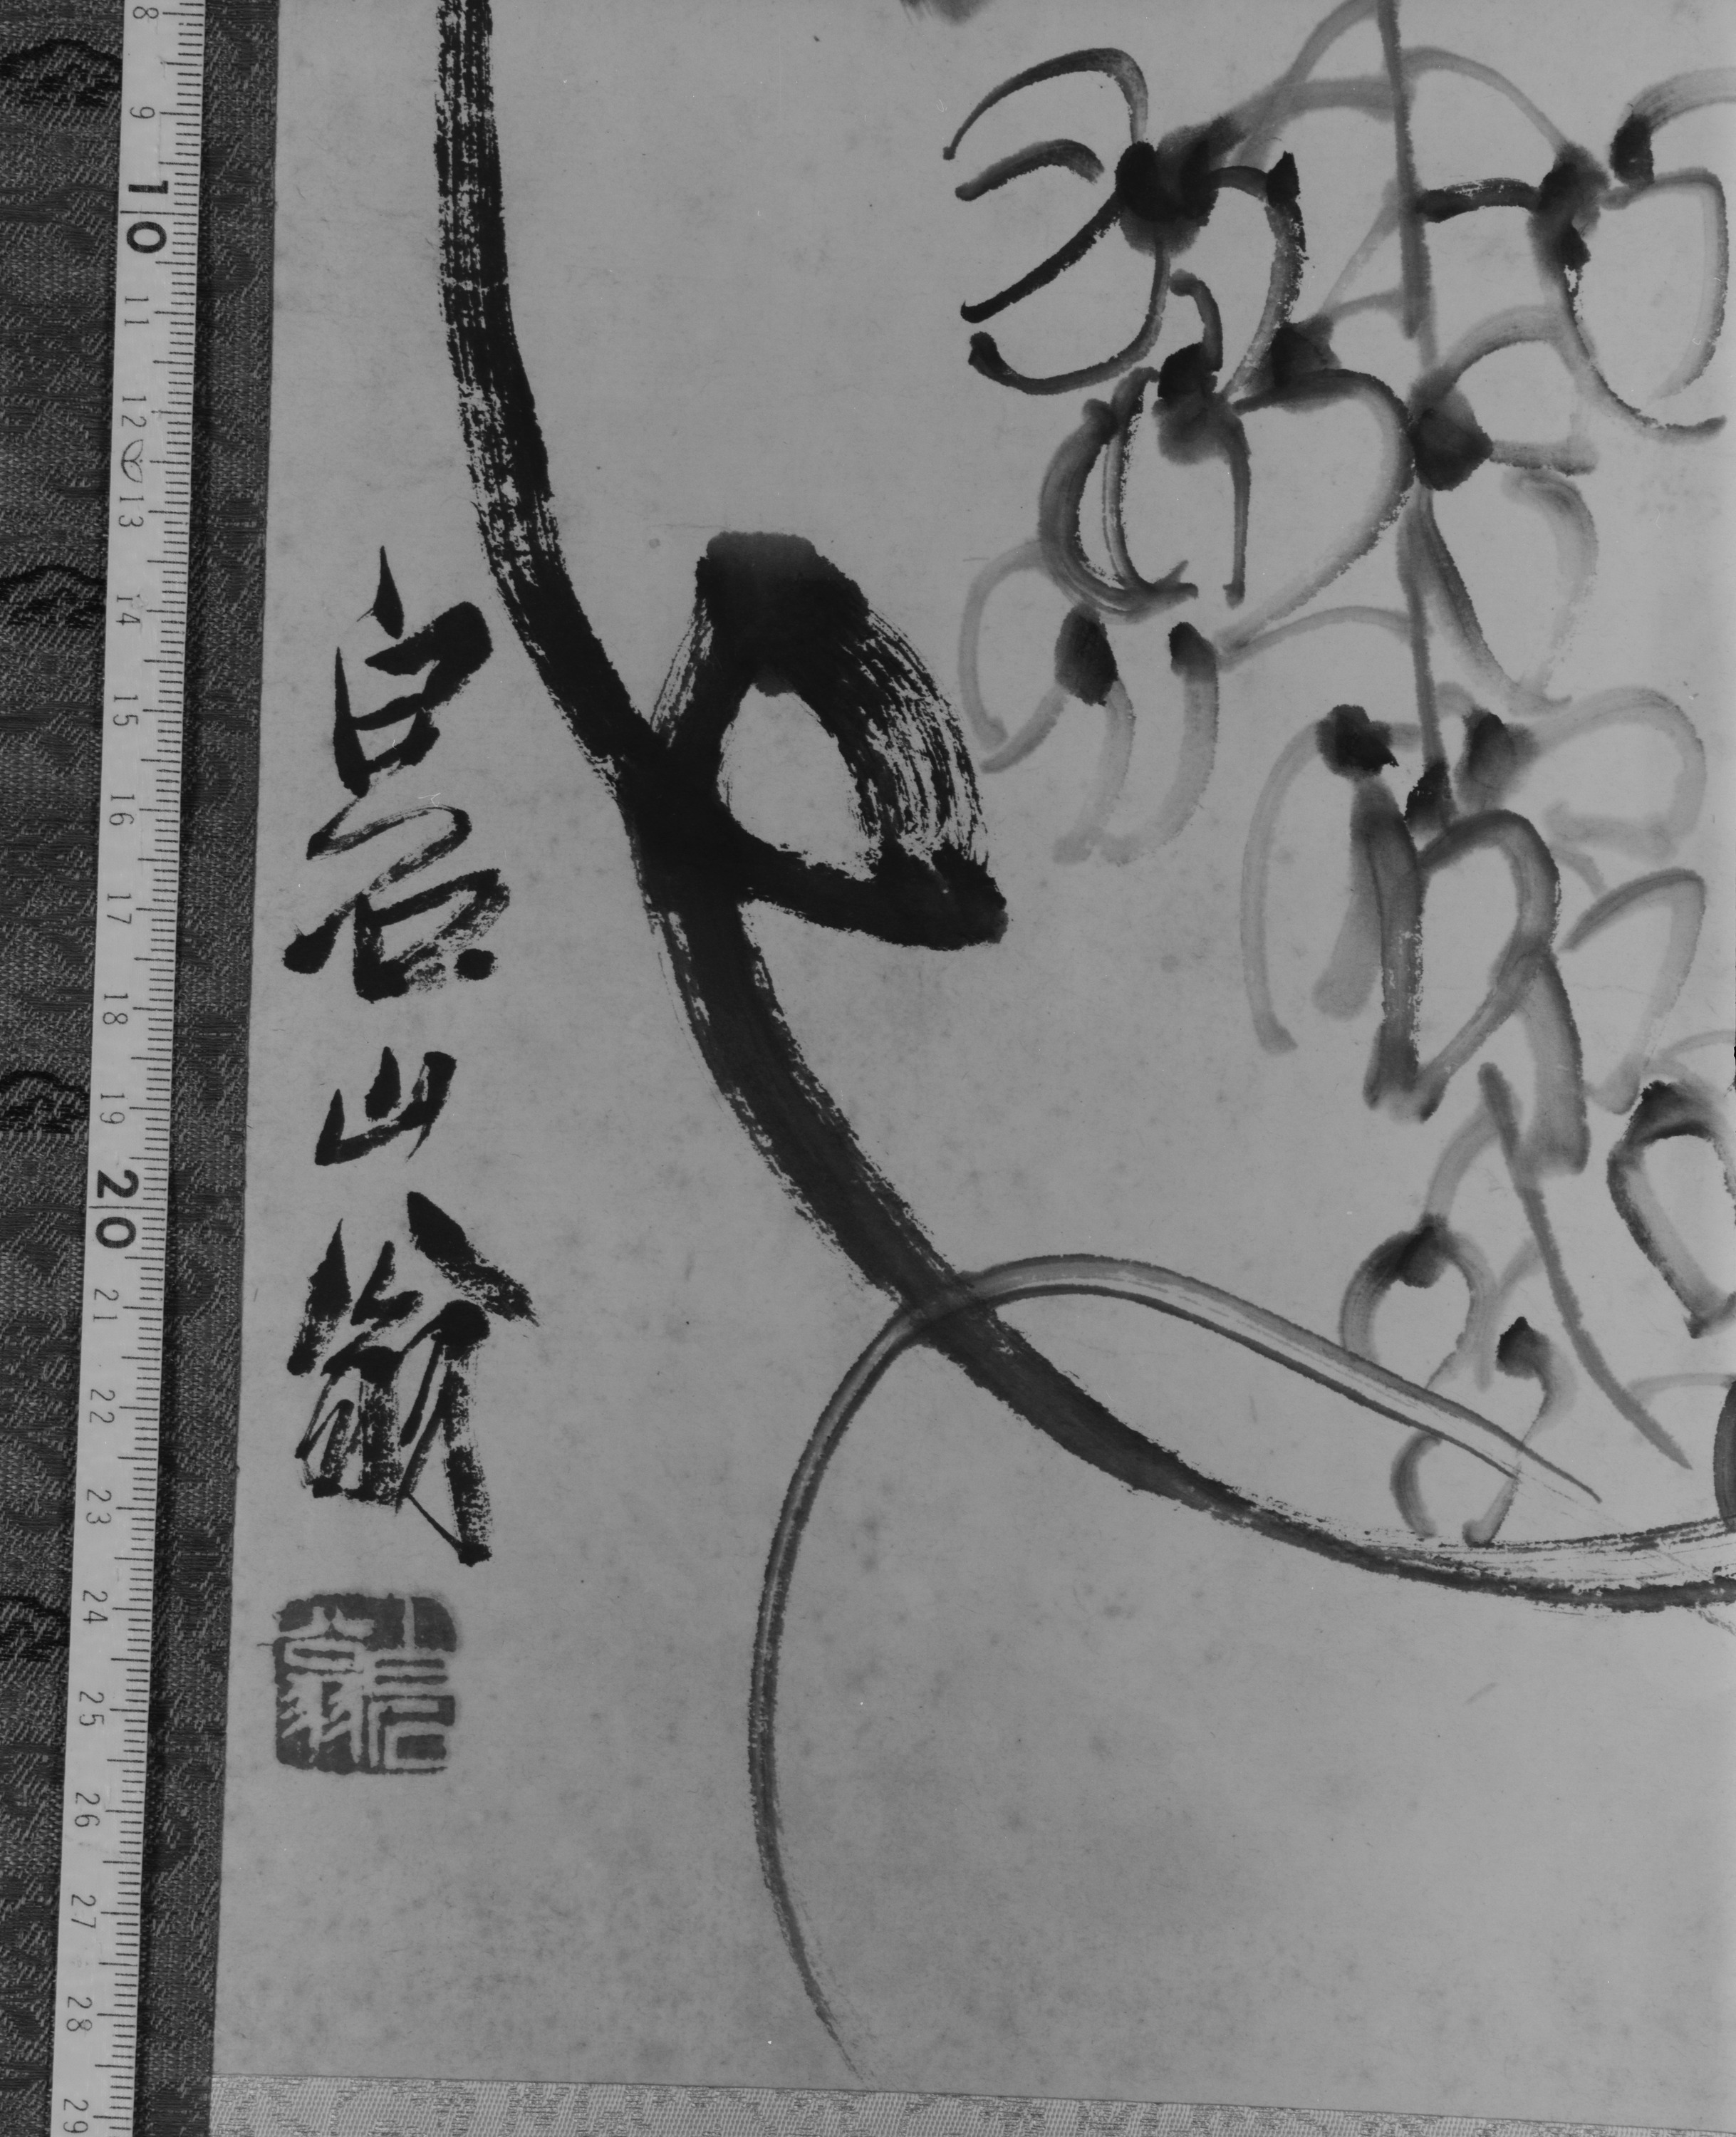 白石山翁
8
9
10
11
12
13
14
15
16
17
18
19
20
21
22
23
24
25
26
27
28
29